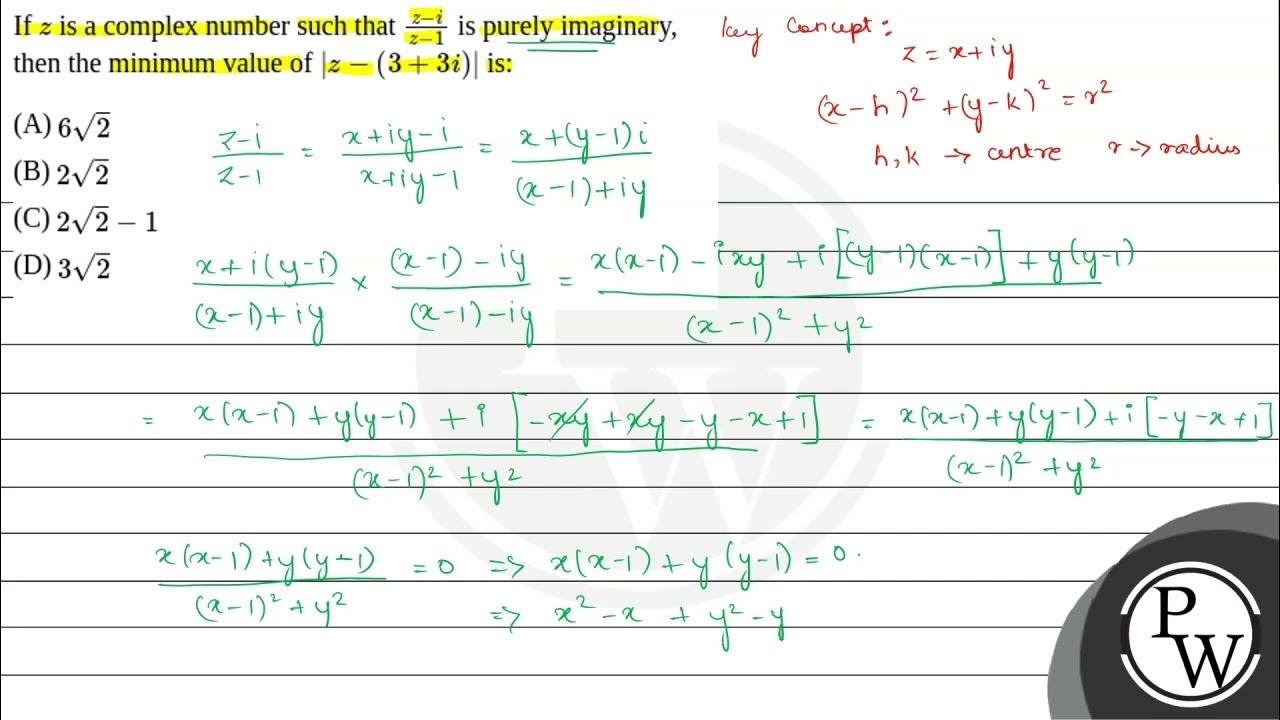 If z is a complex number such that \frac{z-i}{z-1} is purely imaginary,
then the minimum value of |z − (3 + 3i)| is:
(A) 6√2
(B) 2√2
(C) 2√2 − 1
(D) 3√2
key concept:
z = x+iy
(x-h)² + (y-k)² = r²
h,k → centre r → radius
\frac{z-i}{z-1} = \frac{x+iy-i}{x+iy-1} = \frac{x+(y-1)i}{(x-1)+iy}
\frac{x+i(y-1)}{(x-1)+iy} × \frac{(x-1)-iy}{(x-1)-iy} = \frac{x(x-1) - ixy + i[(y-1)(x-1)] + y(y-1)}{(x-1)² + y²}
= \frac{x(x-1) + y(y-1) + i[-xy + xy - y - x + 1]}{(x-1)² + y²} = \frac{x(x-1) + y(y-1) + i[-y-x+1]}{(x-1)² + y²}
\frac{x(x-1) + y(y-1)}{(x-1)² + y²} = 0 => x(x-1) + y(y-1) = 0.
=> x² - x + y² - y
PW